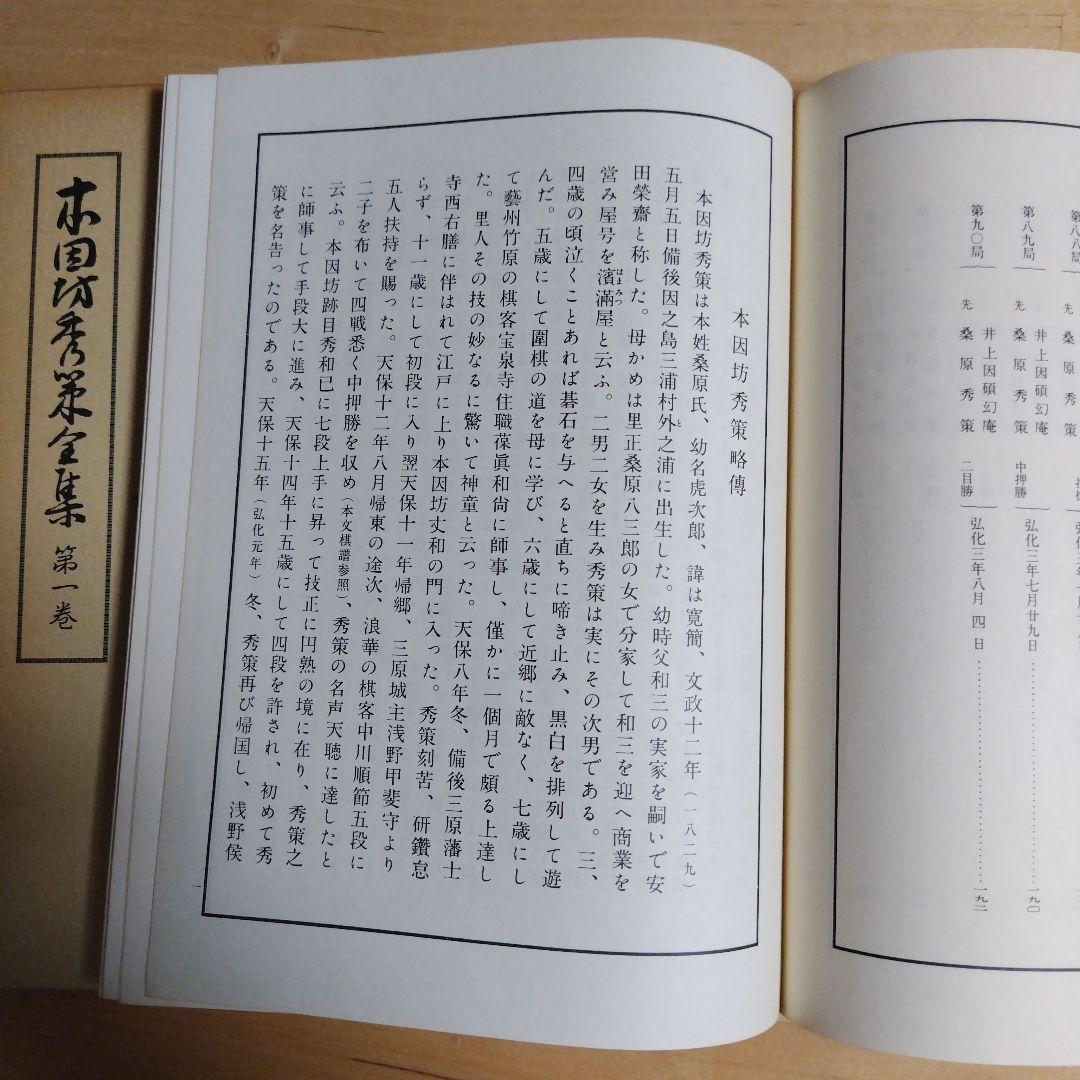 本因坊秀策全集 第一巻
第八八局
先 桑原秀策
第八九局
井上因碩幻庵
先 桑原秀策
中押勝
弘化三年七月廿九日
一九〇
第九〇局
井上因碩幻庵
先 桑原秀策
二目勝
弘化三年八月四日
一九二
本因坊秀策略傳
本因坊秀策は本姓桑原氏、幼名虎次郎、諱は寛簡、文政十二年（一八二九）
五月五日備後因之島三浦村外之浦に出生した。幼時父和三の実家を嗣いで安
田榮齋と称した。母かめは里正桑原八三郎の女で分家して和三を迎へ商業を
営み屋号を濱滿屋と云ふ。二男二女を生み秀策は実にその次男である。三、
四歳の頃泣くことあれば碁石を与へると直ちに啼き止み、黒白を排列して遊
んだ。五歳にして圍棋の道を母に学び、六歳にして近郷に敵なく、七歳にし
て藝州竹原の棋客宝泉寺住職葆眞和尚に師事し、僅かに一個月で頗る上達し
た。里人その技の妙なるに驚いて神童と云った。天保八年冬、備後三原藩士
寺西右膳に伴はれて江戸に上り本因坊丈和の門に入った。秀策刻苦、研鑽怠
らず、十一歳にして初段に入り翌天保十一年帰郷、三原城主浅野甲斐守より
五人扶持を賜った。天保十二年八月帰東の途次、浪華の棋客中川順節五段に
二子を布いて四戦悉く中押勝を収め（本文棋譜参照）、秀策の名声天聴に達したと
云ふ。本因坊跡目秀和已に七段上手に昇って技正に円熟の境に在り、秀策之
に師事して手段大に進み、天保十四年十五歳にして四段を許され、初めて秀
策を名告ったのである。天保十五年（弘化元年）冬、秀策再び帰国し、浅野侯
一